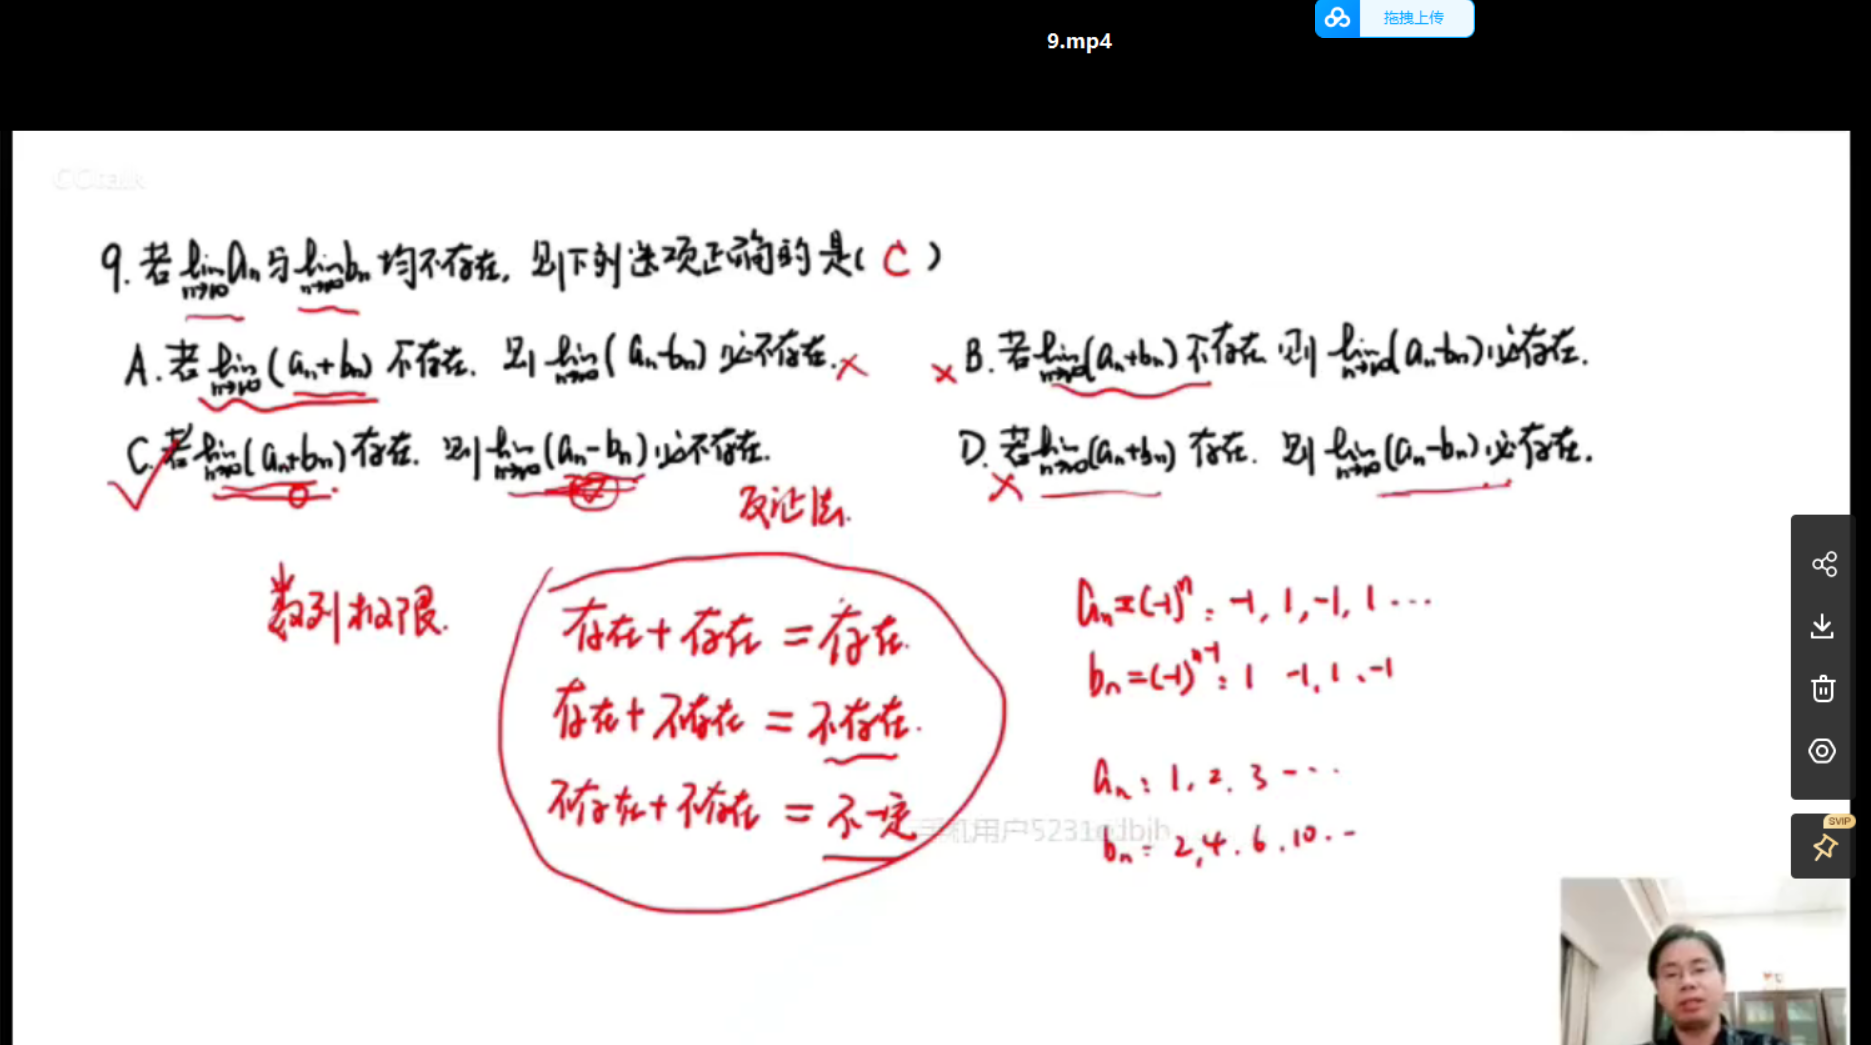 拖拽上传
9.mp4
CCtalk
9. 若lim n→∞ an与lim n→∞ bn均不存在, 则下列选项正确的是( C )
A. 若lim n→∞ (an+bn)不存在. 则lim n→∞ (an-bn)必不存在. ×
× B. 若lim n→∞ (an+bn)不存在 则lim n→∞ (an-bn)必存在.
C. 若lim n→∞ (an+bn)存在. 则lim n→∞ (an-bn)必不存在.
D. 若lim n→∞ (an+bn)存在. 则lim n→∞ (an-bn)必存在.
反证法.
数列极限.
存在+存在=存在.
存在+不存在=不存在.
不存在+不存在=不一定
an=(-1)^n: -1, 1, -1, 1 ···
bn=(-1)^n-1: 1 -1, 1, -1
an: 1, 2. 3 ···
bn: 2, 4. 6. 10. ··
手机用户5231edbjh
SVIP